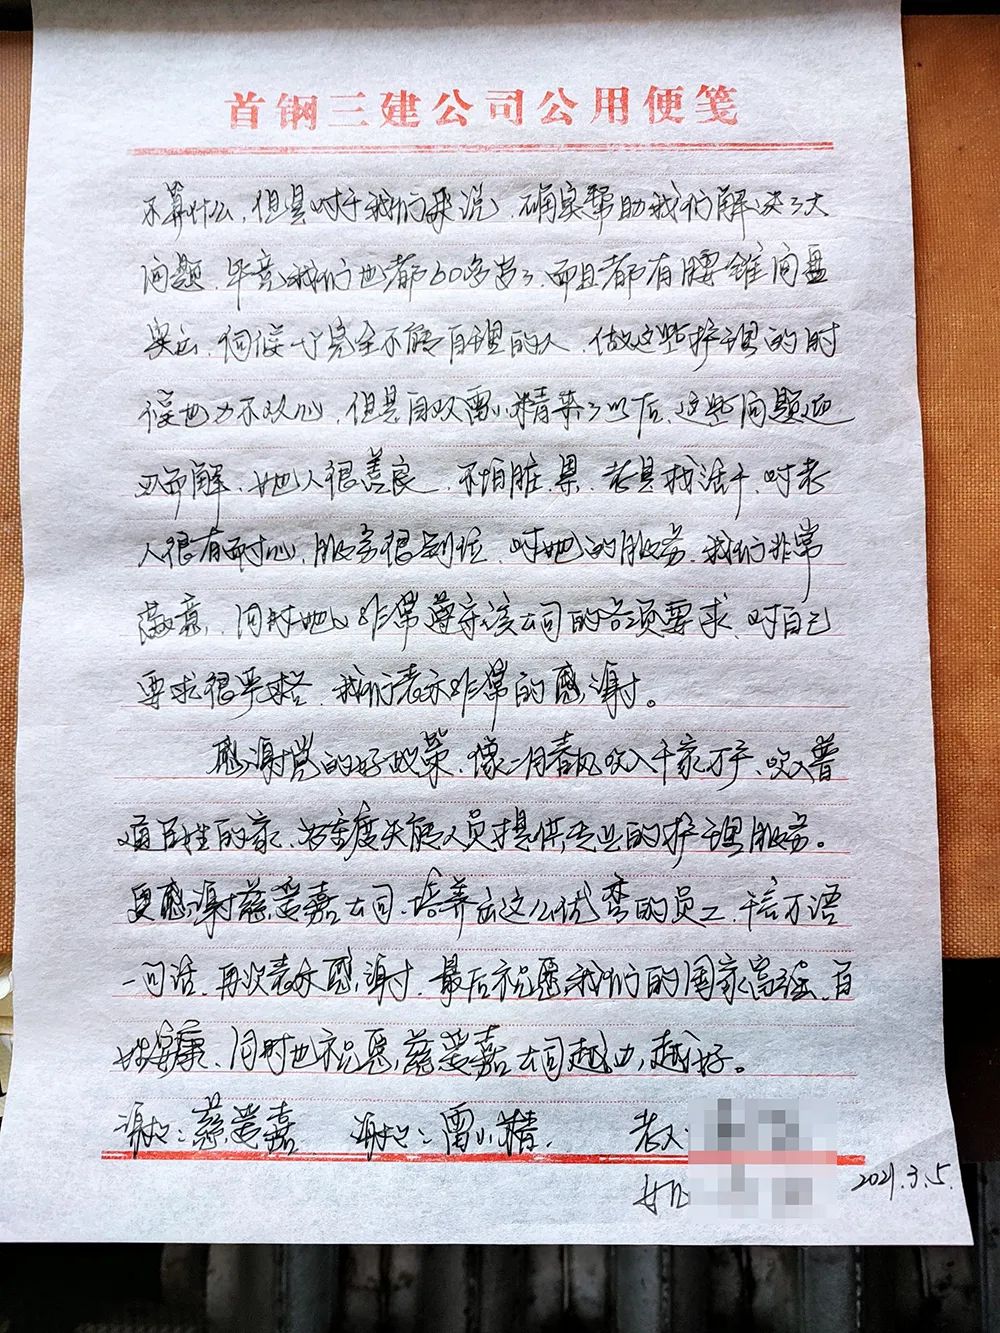 首钢三建公司公用便笺
不算什么，但是对于我们来说，确实帮助我们解决了大
问题，毕竟我们也都60多岁了，而且都有腰椎间盘
突出，伺候一个完全不能自理的人，做这些护理的时
候也力不从心，但是自从雷小精来了以后，这些问题迎
刃而解，她人很善良，不怕脏、累，老是找活干，对老
人很有耐心，服务很到位，对她的服务，我们非常
满意，同时她也非常遵守该公司的各项要求，对自己
要求很严格，我们表示非常的感谢。
感谢党的好政策，像二月春风吹入千家万户，吹入普
通百姓的家，为重度失能人员提供专业的护理服务。
更感谢慈爱嘉公司，培养出这么优秀的员工，千言万语
一句话，再次表示感谢，最后祝愿我们的国家富强，百
姓安康，同时也祝愿慈爱嘉公司越办越好。
谢谢：慈爱嘉 谢谢：雷小精 老人：
女儿 2021.3.5.